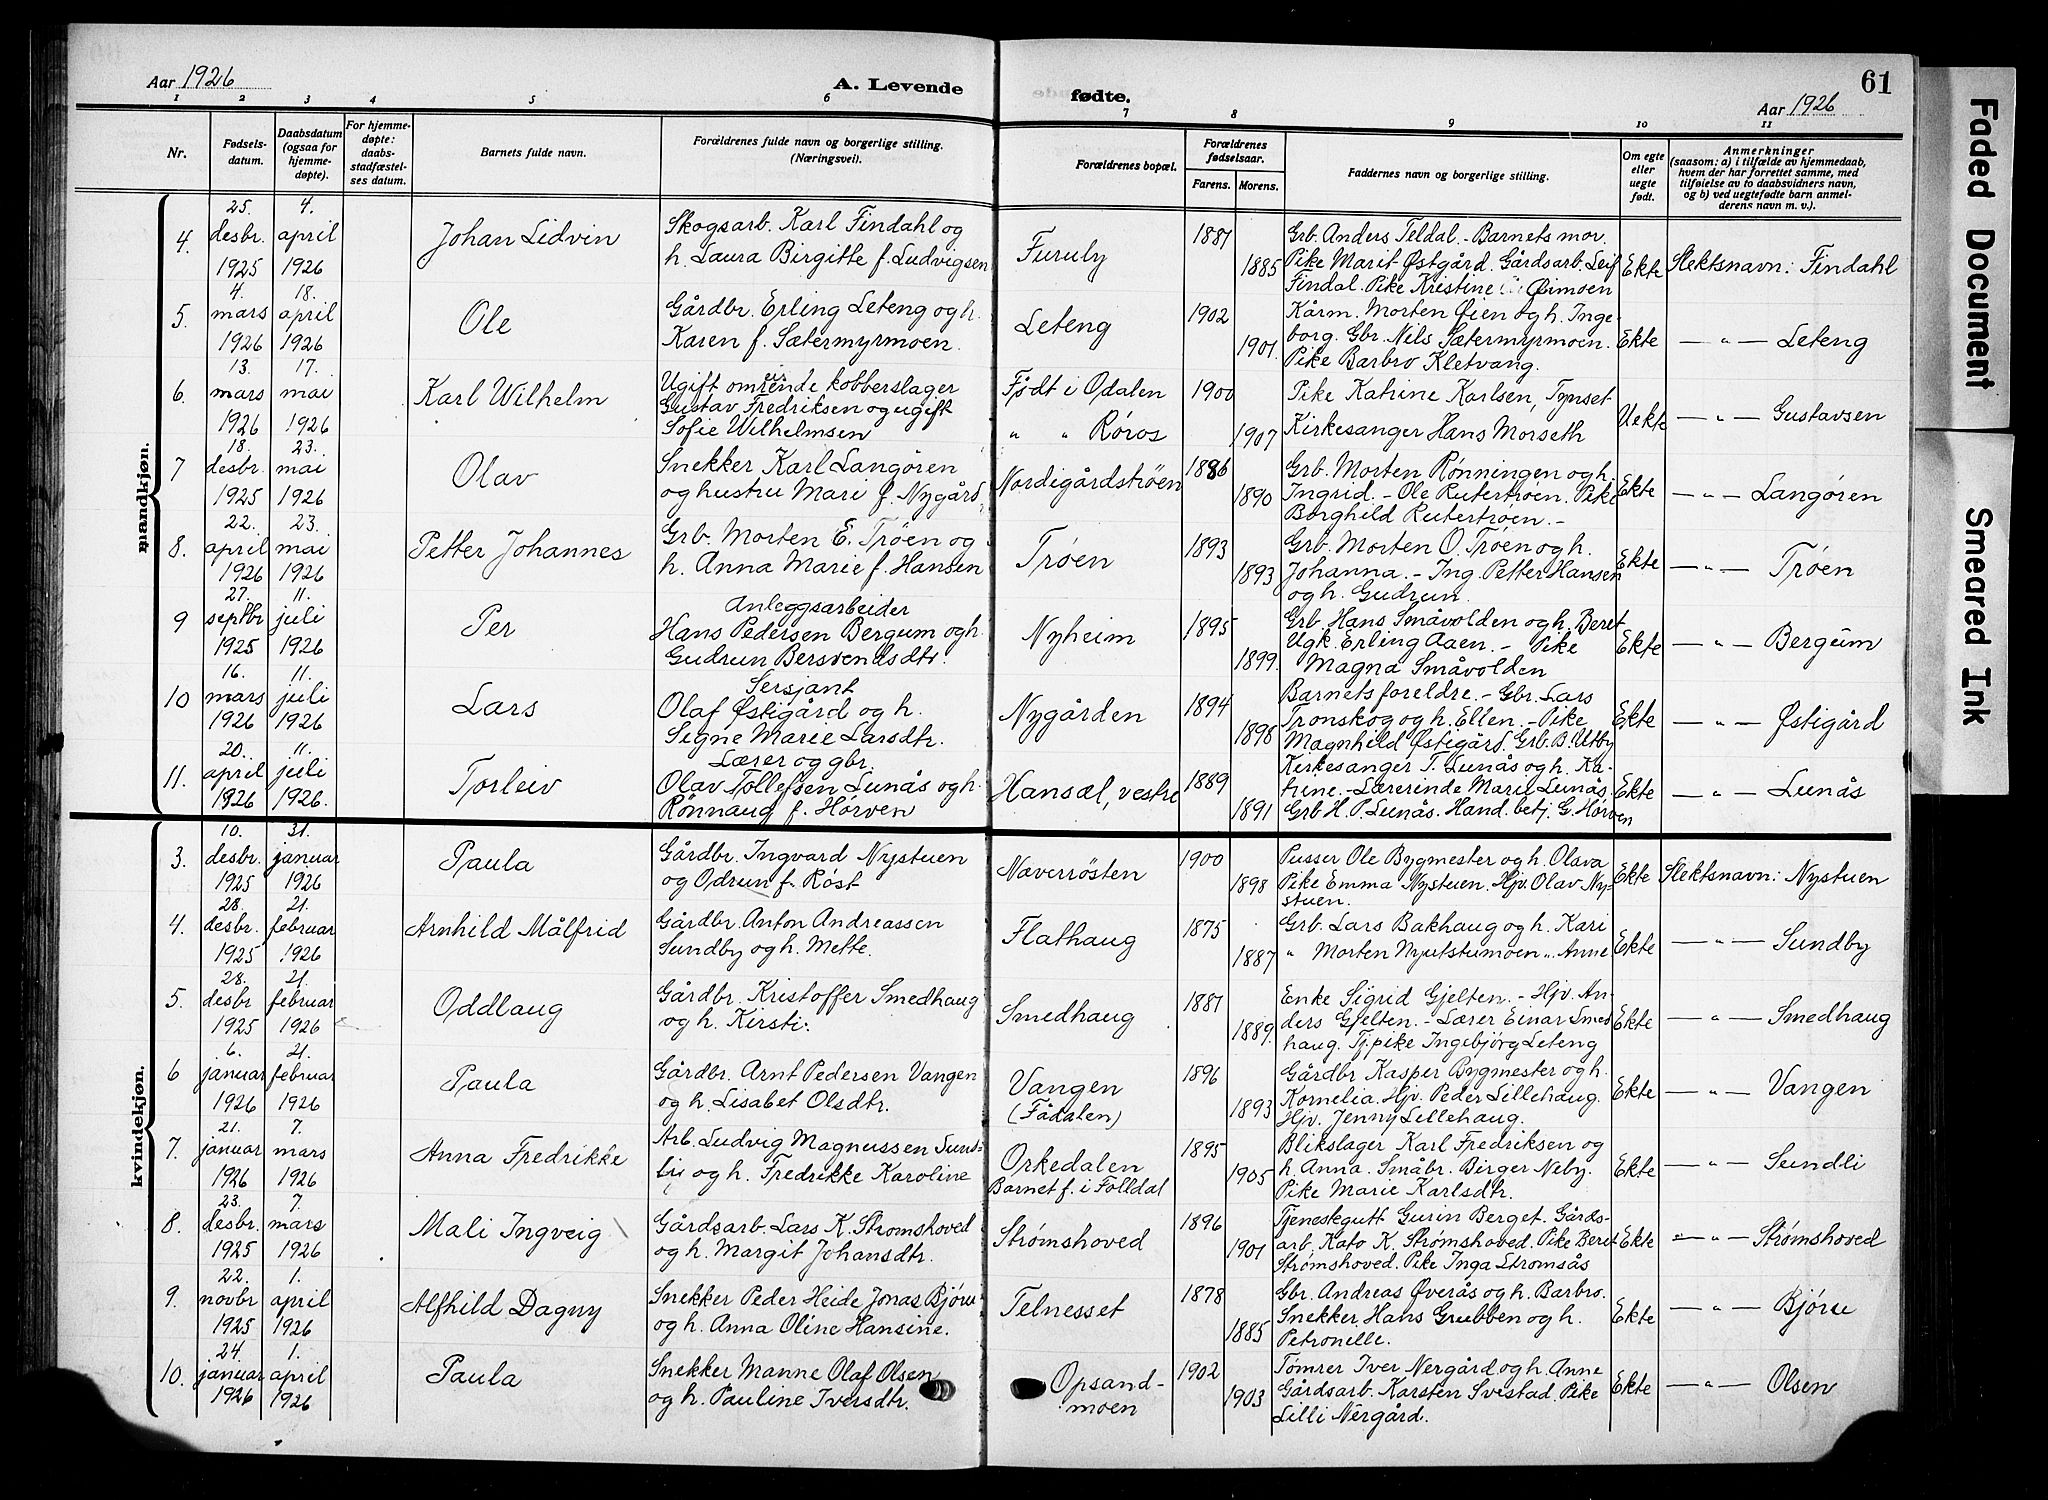 Aar 1926
A. Levende
fødte.
61
Aar 1926
1 2 3 4 5 6 7 8 9 10 11
Nr.
Fødsels-
datum.
Daabsdatum
(ogsaa for
hjemme-
døpte).
For hjemme-
døpte:
daabs-
stadfæstel-
ses datum.
Barnets fulde navn.
Forældrenes fulde navn og borgerlige stilling.
(Næringsvei).
Forældrenes bopæl.
Forældrenes
fødselsaar.
Farens. Morens.
Faddernes navn og borgerlige stilling.
Om egte
eller
uegte
født.
Anmerkninger
(saasom: a) i tilfælde av hjemmedaab,
hvem der har forrettet samme, med
tilføielse av to daabsvidners navn,
og b) ved uegtefødte barn anmel-
derens navn m. v.).
mandkjøn.
4.
25.
desbr.
1925
4.
april
1926
Johan Lidvin
Skogsarb. Karl Findahl og
h. Laura Birgitte f. Ludvigsen
Furuly
1881
1885
Grb. Anders Teldal. - Barnets mor.
Pike Marit Østgård. Gårdsarb. Leif
Findal. Pike Kristine Øvrmoen
Ekte
Slektsnavn: Findahl
5.
4.
mars
1926
18.
april
1926
Ole
Gårdbr. Erling Leteng og h.
Karen f. Sætermyrmoen.
Leteng
1902
1901.
Kårm. Morten Øien og h. Inge-
borg. Gbr. Nils Sætermyrmoen.
Pike Barbro Kletvang.
Ekte
— " — Leteng
6.
13.
mars
1926
17.
mai
1926
Karl Wilhelm
Ugift omreisende kobberslager
Gustav Fredriksen og ugift
Sofie Wilhelmsen
Født i Odalen
" " Røros
1900
1907
Pike Katrine Karlsen, Tynset
Kirkesanger Hans Morseth
Uekte
— " — Gustavsen
7
18.
desbr.
1925
23.
mai
1926
Olav
Snekker Karl Langøren
og hustru Mari f. Nygård,
Nordigårdstrøen
1886
1890
Grb. Morten Rønningen og h.
Ingrid. - Ole Rutertrøen. Pike
Borghild Rutertrøen. -
Ekte
— " — Langøren
8.
22.
april
1926
23.
mai
1926
Petter Johannes
Grb. Morten E. Trøen og
h. Anna Marie f. Hansen
Trøen
1893
1893
Grb. Morten O. Trøen og h.
Johanna. - Ing. Petter Hansen
og h. Gudrun.
Ekte
— " — Trøen
9
27.
septbr
1925
11.
juli
1926
Per
Anleggsarbeider
Hans Pedersen Bergum og h.
Gudrun Bersvendsdtr.
Nyheim
1895
1899.
Grb. Hans Småvolden og h. Beret
Ugk. Erling Aaen. - Pike
Magna Småvolden
Ekte
— " — Bergum
10
16.
mars
1926
11.
juli
1926
Lars
Sersjant
Olaf Østigård og h.
Signe Marie Larsdtr.
Nygården
1894
1898
Barnets foreldre. - Gbr. Lars
Tronskog og h. Ellen. - Pike
Magnhild Østigård. Grb. B. Utby
Ekte
— " — Østigård
11.
20.
april
1926
11.
juli
1926.
Torleiv
Lærer og gbr.
Olav Tollefsen Lunås og h.
Rønnaug f. Hørven
Hansæl, vestre
1889
1891
Kirkesanger T. Lunås og h. Ka-
trine. - Lærerinde Marie Lunås.
Grb H. P. Lunås. Hand. betj. G. Hørven
Ekte
— " — Lunås
kvindekjøn.
3.
10.
desbr.
1925
31.
januar
1926
Paula
Gårdbr. Ingvard Nystuen
og Odrun f. Røst
Næverrösten
1900
1898
Pusser Ole Bygmester og h. Olava
Pike Emma Nystuen. Hjv. Olav Ny-
stuen.
Ekte
Slektsnavn: Nystuen
4.
28.
desbr.
1925
21.
februar
1926
Arnhild Målfrid
Gårdbr. Anton Andreassen
Sundby og h. Mette.
Flathaug
1875
1887
Grb. Lars Bakhaug og h. Kari
" Morten Nyutstumoen " Anne
Ekte
— " — Sundby
5.
28.
desbr
1925
21.
februar
1926
Oddlaug
Gårdbr. Kristoffer Smedhaug
og h. Kirsti.
Smedhaug
1881
1889.
Enke Sigrid Gjelten. - Hjv. An-
ders Gjelten. - Lærer Einar Smed
haug. Tj. pike Ingebjørg Leteng
Ekte
— " — Smedhaug
6
6.
januar
1926
21.
februar
1926
Paula
Gårdbr. Arnt Pedersen Vangen
og h. Lisabet Olsdtr.
Vangen
(Fådalen)
1896
1893
Gårdbr Kasper Bygmester og h.
Kornelia. Hjv. Peder Lillehaug.
Hjv. Jenny Lillehaug.
Ekte
— " — Vangen
7.
21.
januar
1926
7.
mars
1926
Anna Fredrikke
Arb. Ludvig Magnussen Sund-
li og h. Fredrikke Karoline
Orkedalen
Barnet f. i Folldal
1895
1905
Blikslager Karl Fredriksen og
h. Anna. Småbr. Birger Neby.
Pike Marie Karlsdtr.
Ekte
— " — Sundli
8.
23.
desbr.
1925
7.
mars
1926
Mali Ingveig
Gårdsarb. Lars K. Strømshoved
og h. Margit Johansdtr.
Strømshoved
1896
1901
Tjenestgutt Gurin Berget. Gårds-
arb. Kato K. Strømshoved. Pike Beret
Strømshoved. Pike Inga Strømsås
Ekte
— " — Strømshoved
9.
22.
novbr
1925
1.
april
1926
Alfhild Dagny
Snekker Peder Heide Jonas Bjøru
og h. Anna Oline Hansine.
Telnesset
1878
1885
Gbr. Andreas Øverås og h. Barbro.
Snekker Hans Grubben og h.
Petronelle.
Ekte
— " — Bjøru
10.
24.
januar
1926
1.
april
1926
Paula
Snekker Manne Olaf Olsen
og h. Pauline Iversdtr.
Opsand-
moen
1902
1903
Tømrer Iver Nergård og h. Anne
Gårdsarb. Karsten Svistad. Pike
Lilli Nergård.
Ekte
— " — Olsen
Faded Document
Smeared Ink